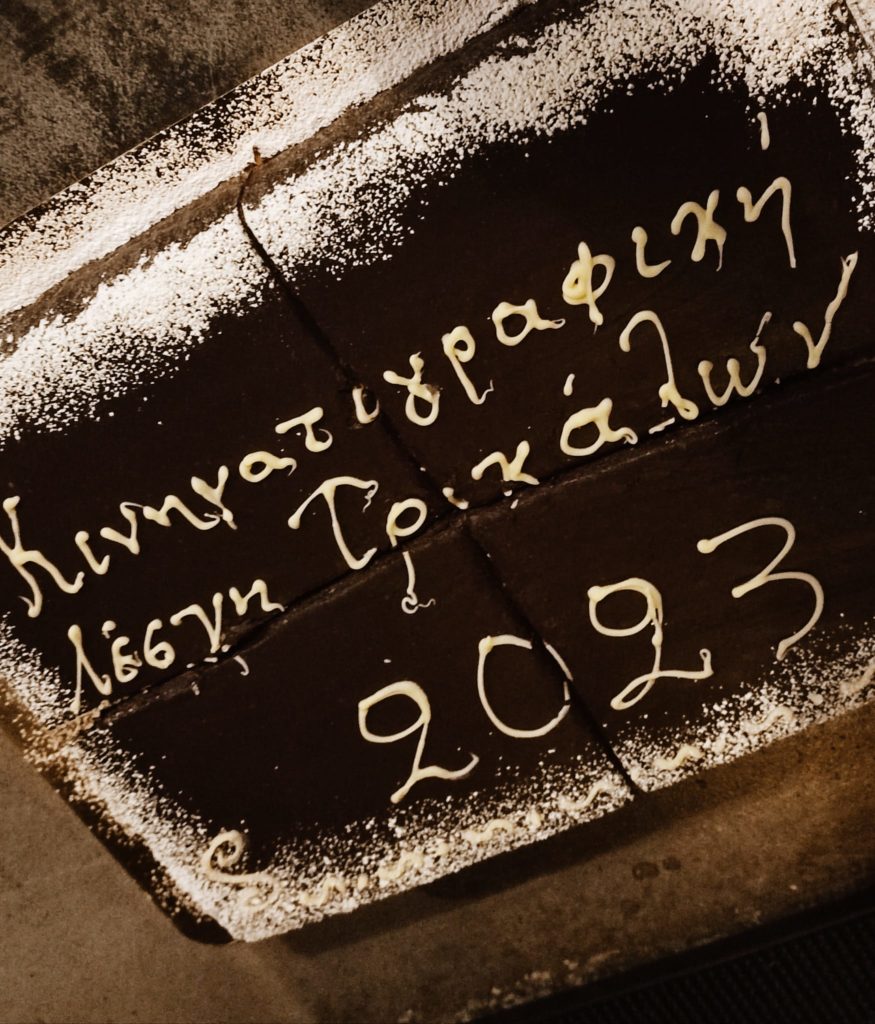 Κινηματογραφική
Λέσχη Τρικάλων
2023